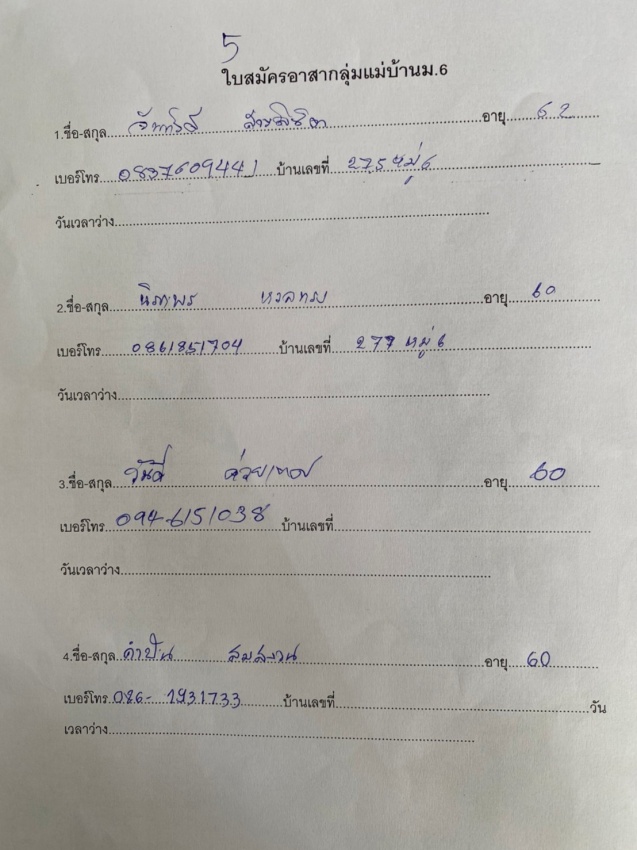 5
ใบสมัครอาสากลุ่มแม่บ้านม.6
1.ชื่อ-สกุล อายุ 62
เบอร์โทร 0837609441 บ้านเลขที่ 275 หมู่ 6
วันเวลาว่าง
2.ชื่อ-สกุล นิภาพร อายุ 60
เบอร์โทร 0861851704 บ้านเลขที่ 277 หมู่ 6
วันเวลาว่าง
3.ชื่อ-สกุล วันดี อายุ 60
เบอร์โทร 094-6151038 บ้านเลขที่
วันเวลาว่าง
4.ชื่อ-สกุล คำปัน สมสงวน อายุ 60
เบอร์โทร 086-1931733 บ้านเลขที่ วัน
เวลาว่าง